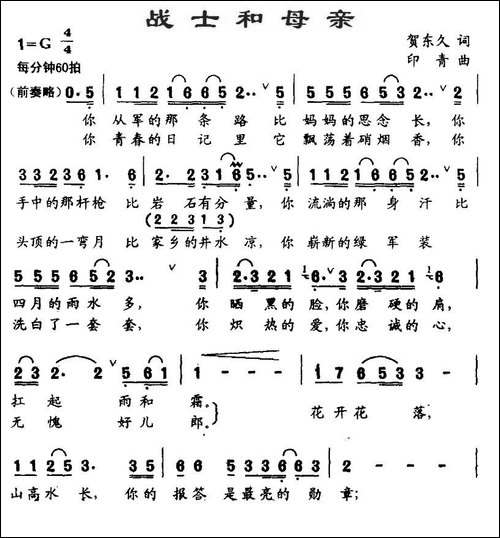 战士和母亲
1=G 4/4
贺东久 词
每分钟60拍
印青 曲
(前奏略) 0·5 | 1112 1665 2·· ∨5 | 5552 6653 2·· ∨5 |
你 从军的那 条 路 比 妈妈的思念 长,你
你 青春的日 记 里 它 飘荡着硝烟 香,你
3323 61 6· 5 | 2· 231 6 · ∨5 | 1112 1665 2·· ∨5 |
手中的那杆枪 比 岩 石有分 量,你 流淌的 那 身 汗 比
(2 2 3 1 3)
头顶的一弯月 比 家乡的井水 凉,你 崭新的绿 军 装
5556 652 3·· ∨3 | 2·321 6· ∨3 | 2·321 6·
四月的雨水 多, 你 晒 黑的 脸,你磨 硬的 肩,
洗白了一套 套, 你 炽 热的 爱,你忠 诚的 心,
23 2· 2 ∨561 | 1 - - - | 17 6 5 3 |
扛 起 雨和 霜。
花开花 落,
无 愧 好儿 郎。
1125 3· 35 | 665 33665 | 2 - - - |
山高水 长, 你的 报答 是最亮的 勋 章;